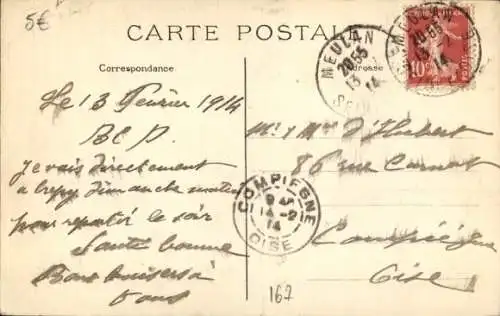 5€
CARTE POSTALE
Correspondance
Adresse
MEULAN
20 55
13
14
MEULAN
14
10
POSTES
Le 13 Février 1914
B C P.
je vais directement
a crepy dimanche matin
pour repartir le soir
Santé bonne
Bons baisers à
tous
Mr & Mme d'
86 rue Carnot
Compiègne
Oise
COMPIEGNE
14 - 2
14
OISE
167